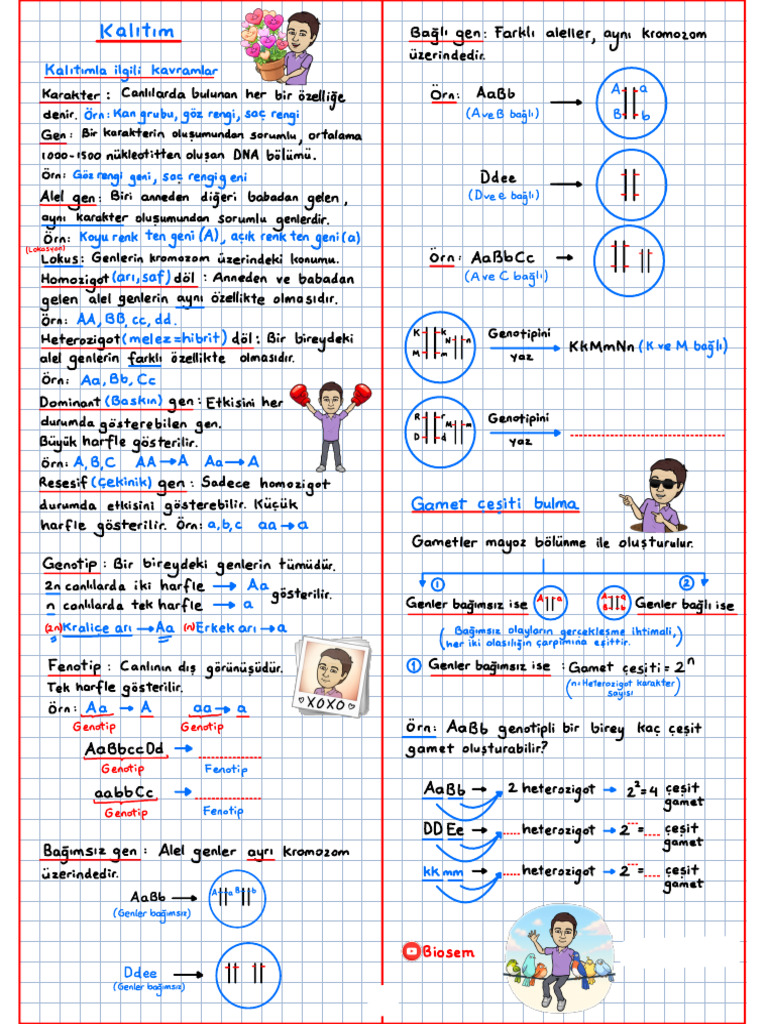 Kalıtım
Kalıtımla ilgili kavramlar
Karakter : Canlılarda bulunan her bir özelliğe
denir. Örn: Kan grubu, göz rengi, saç rengi
Gen: Bir karakterin oluşumundan sorumlu, ortalama
1000-1500 nükleotitten oluşan DNA bölümü.
Örn: Göz rengi geni, saç rengi geni
Alel gen: Biri anneden diğeri babadan gelen,
aynı karakter oluşumundan sorumlu genlerdir.
Örn: Koyu renk ten geni (A), açık renk ten geni (a)
(Lokasyon)
Lokus: Genlerin kromozom üzerindeki konumu.
Homozigot (arı, saf) döl : Anneden ve babadan
gelen alel genlerin aynı özellikte olmasıdır.
Örn: AA, BB, cc, dd.
Heterozigot (melez=hibrit) döl: Bir bireydeki
alel genlerin farklı özellikte olmasıdır.
Örn: Aa, Bb, Cc
Dominant (Baskın) gen: Etkisini her
durumda gösterebilen gen.
Büyük harfle gösterilir.
Örn: A, B, C AA→A Aa→A
Resesif (Çekinik) gen: Sadece homozigot
durumda etkisini gösterebilir. Küçük
harfle gösterilir. Örn: a,b,c aa→a
Genotip: Bir bireydeki genlerin tümüdür.
2n canlılarda iki harfle → Aa
gösterilir.
n canlılarda tek harfle → a
(2n) Kraliçe arı → Aa (n) Erkek arı → a
Fenotip : Canlının dış görünüşüdür.
Tek harfle gösterilir.
Örn: Aa → A aa → a
Genotip Genotip
XOXO
AaBbccDd → ..........
Genotip Fenotip
aabbCc → ..........
Genotip Fenotip
Bağımsız gen : Alel genler ayrı kromozom
üzerindedir.
AaBb → A a B b
(Genler bağımsız)
Ddee →
(Genler bağımsız)
Bağlı gen: Farklı aleller, aynı kromozom
üzerindedir.
Örn: AaBb → A a B b
(A ve B bağlı)
Ddee →
(D ve e bağlı)
Örn: AaBbCc →
(A ve C bağlı)
K k N n M m Genotipini yaz → KkMmNn (K ve M bağlı)
R r M m D d Genotipini yaz → ..........
Gamet çeşiti bulma
Gametler mayoz bölünme ile oluşturulur.
1 2
Genler bağımsız ise A a A a B b Genler bağlı ise
(Bağımsız olayların gerçekleşme ihtimali,
her iki olasılığın çarpımına eşittir.)
1 Genler bağımsız ise : Gamet çeşiti = 2ⁿ
(n: Heterozigot karakter
sayısı)
Örn: AaBb genotipli bir birey kaç çeşit
gamet oluşturabilir?
AaBb → 2 heterozigot → 2²=4 çeşit gamet
DDEe → .... heterozigot → 2 = .... çeşit gamet
kkmm → .... heterozigot → 2 = .... çeşit gamet
Biosem